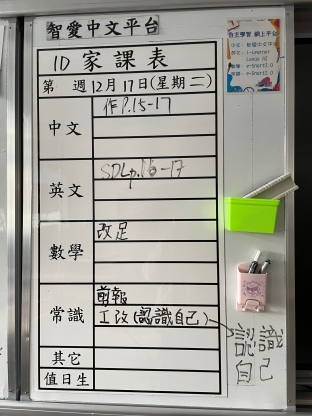 智愛中文平台
1D 家課表
第 週 12月17日(星期二)
中文
作P.15-17
英文
SDLp.16-17
數學
改足
常識
剪報
工改(認識自己)
認識
自己
其它
值日生
自主學習 網上平台